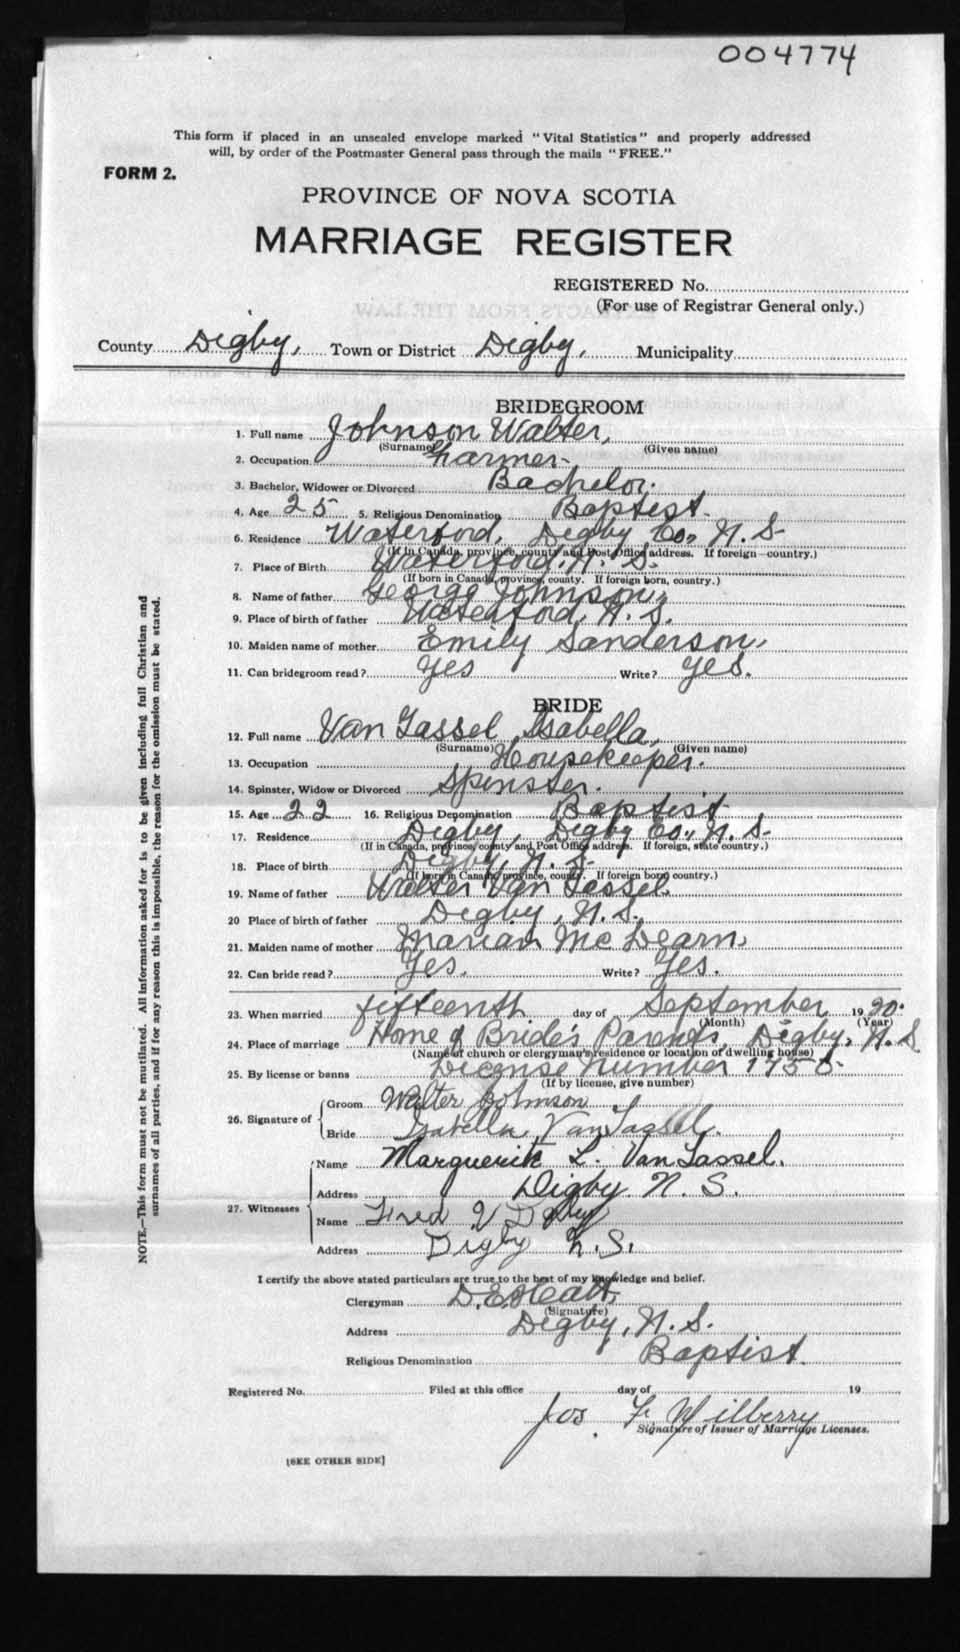 004774
This form if placed in an unsealed envelope marked "Vital Statistics" and properly addressed
will, by order of the Postmaster General pass through the mails "FREE."
FORM 2.
PROVINCE OF NOVA SCOTIA
MARRIAGE REGISTER
REGISTERED No.
(For use of Registrar General only.)
County Digby, Town or District Digby, Municipality
BRIDEGROOM
1. Full name Johnson Walter,
(Surname) (Given name)
2. Occupation Farmer.
3. Bachelor, Widower or Divorced Bachelor.
4. Age 25 5. Religious Denomination Baptist.
6. Residence Waterford, Digby Co., N. S.
(If in Canada, province, county and Post Office address. If foreign country.)
7. Place of Birth Waterford, N. S.
(If born in Canada, province, county. If foreign born, country.)
8. Name of father George Johnson,
9. Place of birth of father Waterford, N. S.
10. Maiden name of mother Emily Sanderson,
11. Can bridegroom read? Yes Write? Yes.
BRIDE
12. Full name Van Tassel Isabella,
(Surname) (Given name)
13. Occupation Housekeeper.
14. Spinster, Widow or Divorced Spinster.
15. Age 22 16. Religious Denomination Baptist
17. Residence Digby, Digby Co., N. S.
(If in Canada, province, county and Post Office address. If foreign, state country.)
18. Place of birth Digby, N. S.
(If born in Canada, province, county. If foreign born, country.)
19. Name of father Walter Van Tassel.
20 Place of birth of father Digby, N. S.
21. Maiden name of mother Marian Mc Dearn,
22. Can bride read? Yes. Write? Yes.
23. When married fifteenth day of September 1920.
(Month) (Year)
24. Place of marriage Home of Bride's Parents, Digby, N. S
(Name of church or clergyman's residence or location of dwelling house)
25. By license or banns License number
(If by license, give number)
26. Signature of Groom Walter Johnson
Bride Isabella VanTassel.
27. Witnesses Name Marguerite L. VanTassel.
Address Digby N. S.
Name Fred V
Address Digby N.S.
I certify the above stated particulars are true to the best of my knowledge and belief.
Clergyman D. E. Hatt,
(Signature)
Address Digby, N. S.
Religious Denomination Baptist.
Registered No. Filed at this office day of 19
Jos. F.
Signature of Issuer of Marriage Licenses.
[SEE OTHER SIDE]
NOTE.—This form must not be mutilated. All information asked for is to be given including full Christian and
surnames of all parties, and if for any reason this is impossible, the reason for the omission must be stated.